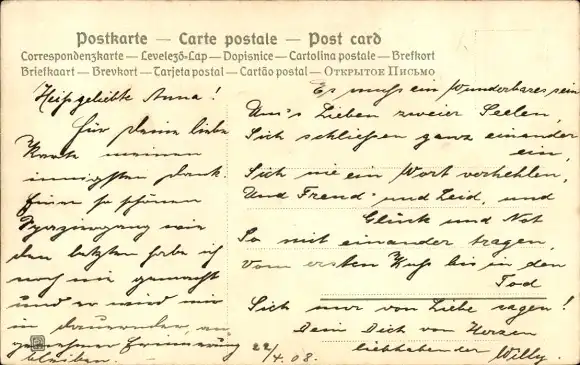 Postkarte — Carte postale — Post card
Correspondenzkarte — Levelező-Lap — Dopisnice — Cartolina postale — Brefkort
Briefkaart — Brevkort — Tarjeta postal — Cartão postal — Открытое Письмо
Heißgeliebte Anna!
Für Deine liebe
Karte meinen
innigsten Dank.
Einen so schönen
Spaziergang wie
den letzten habe ich
noch nie gemacht
und er wird mir
in dauernder, an-
genehmer Erinnerung
bleiben.
22/4. 08.
Es muß ein Wunderbares sein
Um's Lieben zweier Seelen,
Sich schließen ganz einander
ein,
Sich nie ein Wort verhehlen,
Und Freud und Leid, und
Glück und Not
So mit einander tragen,
Vom ersten Kuß bis in den
Tod
Sich nur von Liebe sagen!
Dein Dich von Herzen
liebhabender Willy.